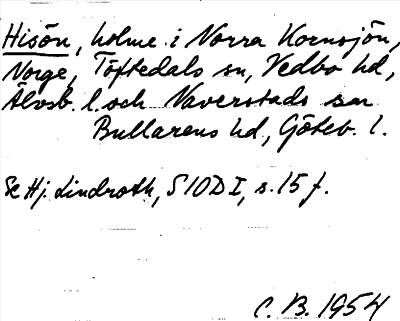 Hisön, holme i Norra Kornsjön,
Norge, Töftedals sn, Vedbo hd,
Älvsb. l. och Naverstads sn
Bullarens hd, Göteb. l.
Se Hj. Lindroth, SIOD I, s. 15 f.
C. B. 1954